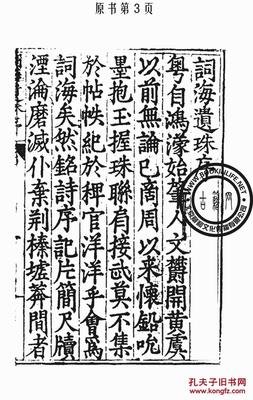 原书第3页
詞海遺珠序
粤自鴻濛始聖人文欝開黄虞
以前無論已商周以來懷鉛吮
墨抱玉握珠聯肩接武莫不集
於帖帙紀於稗官洋洋乎會為
詞海矣然銘詩序記片簡尺牘
湮淪磨滅仆棄荆榛墟莽間者
WWW.BOOKINLIFE.NET
孔夫子旧书网